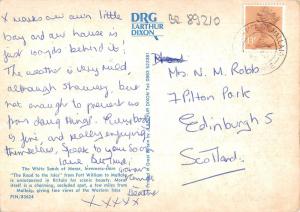 x makes our own little
bay and our house is
just 100yds behind it!
The weather is very mild,
although showery, but
not enough to prevent us
from doing things.
is fine, and really enjoying
themselves. Speak to you soon
love
x x x x
DRG
J. ARTHUR
DIXON
BR 83210
Ms. N. M. Robb
7 Pilton Park
Edinburgh 5
Scotland.
The White Sands of Morar, Inverness-shire
"The Road to the Isles" from Fort William to Mallaig
is unsurpassed in Britain for scenic beauty. Morar
itself is a charming, secluded spot, a few miles from
Mallaig, giving fine views of the Western Isles
PIN/83624